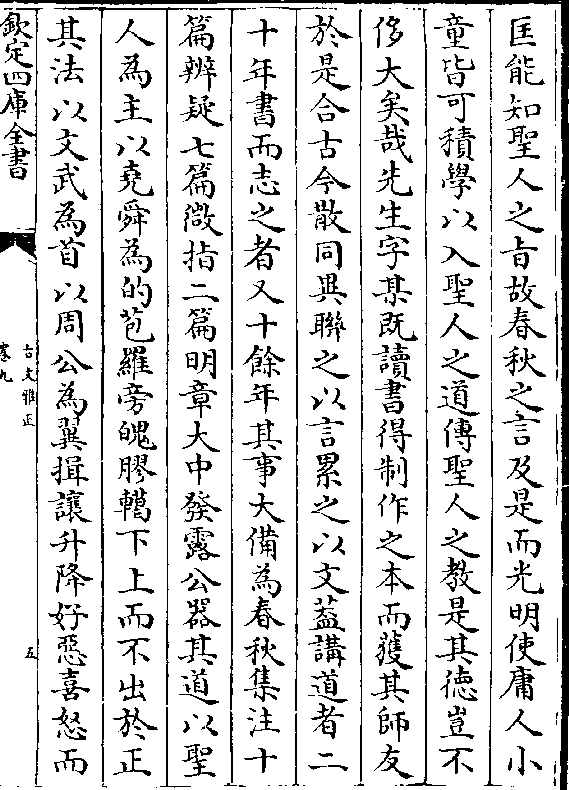 匡能知聖人之旨故春秋之言及是而光明使庸人小
童皆可積學以入聖人之道傳聖人之教是其徳豈不
侈大矣哉先生字某既讀書得制作之本而獲其師友
於是合古今散同異聯之以言累之以文葢講道者二
十年書而志之者又十餘年其事大備為春秋集注十
篇辨疑七篇㣲指二篇明章大中發露公器其道以聖
人為主以堯舜為的苞羅旁魄膠轕下上而不出於正
其法以文武為首以周公為翼揖讓升降好惡喜怒而
欽定四庫全書
古文雅正
卷九
五